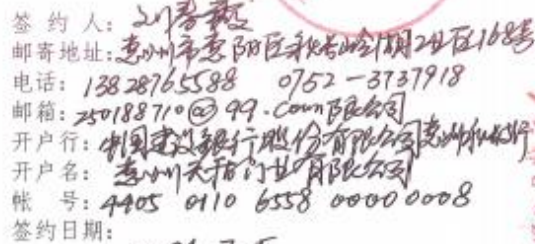 签约人:
邮寄地址:惠州市惠阳区秋长岭湖2社区168号
电话:13828765588 0752-3737918
邮箱:250188710@99.com
开户行:中国建设银行股份有限公司惠州秋长支行
开户名:惠州天指门业有限公司
帐号:4405 0110 6558 0000 0008
签约日期: